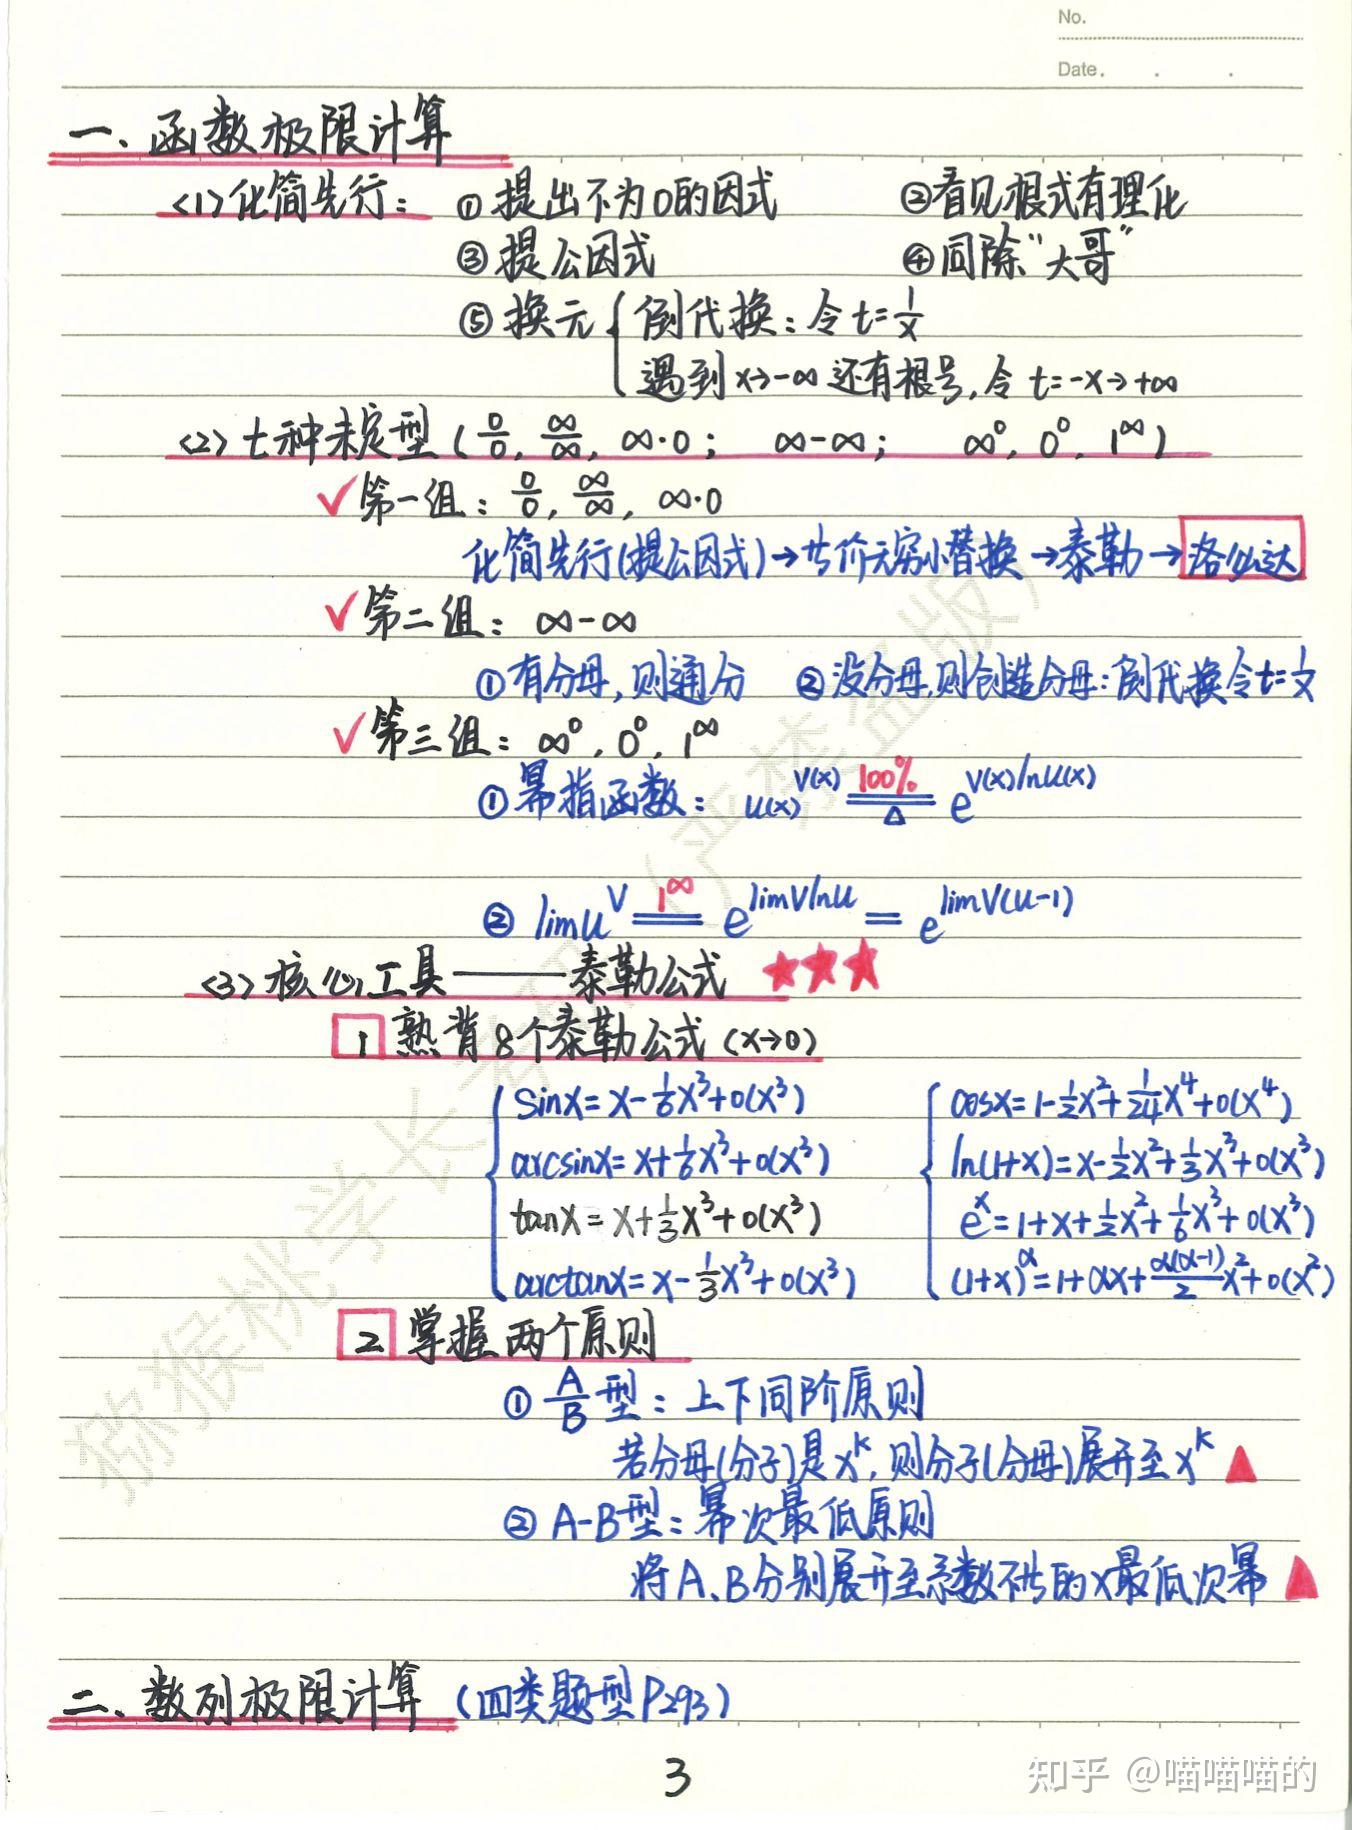 No.
Date. . .
一、函数极限计算
<1>化简先行： ①提出不为0的因式 ②看见根式有理化
③提公因式 ④同除“大哥”
⑤换元{倒代换：令t=1/x
遇到x→-∞还有根号,令t=-x→+∞
<2>七种未定型(0/0, ∞/∞, ∞·0； ∞-∞； ∞⁰, 0⁰, 1^∞)
✓第一组：0/0, ∞/∞, ∞·0
化简先行(提公因式)→等价无穷小替换→泰勒→洛必达
✓第二组：∞-∞
①有分母,则通分 ②没分母,则创造分母：倒代换令t=1/x
✓第三组：∞⁰, 0⁰, 1^∞
①幂指函数：u(x)^V(x) 100% == △ e^V(x)lnu(x)
②limu^V 1^∞ == e^limVlnu = e^limV(u-1)
<3>核心工具——泰勒公式 ★★★
1 熟背8个泰勒公式(x→0)
sinx=x-1/6x³+o(x³) cosx=1-1/2x²+1/24x⁴+o(x⁴)
arcsinx=x+1/6x³+o(x³) ln(1+x)=x-1/2x²+1/3x³+o(x³)
tanx=x+1/3x³+o(x³) e^x=1+x+1/2x²+1/6x³+o(x³)
arctanx=x-1/3x³+o(x³) (1+x)^α=1+αx+α(α-1)/2x²+o(x²)
2 掌握两个原则
①A/B型：上下同阶原则
若分母(分子)是x^k,则分子(分母)展开至x^k▲
②A-B型：幂次最低原则
将A、B分别展开至系数不等的x最低次幂▲
二、数列极限计算(四类题型P293)
3
知乎 @喵喵喵的
猕猴桃学长考研（严禁盗版）